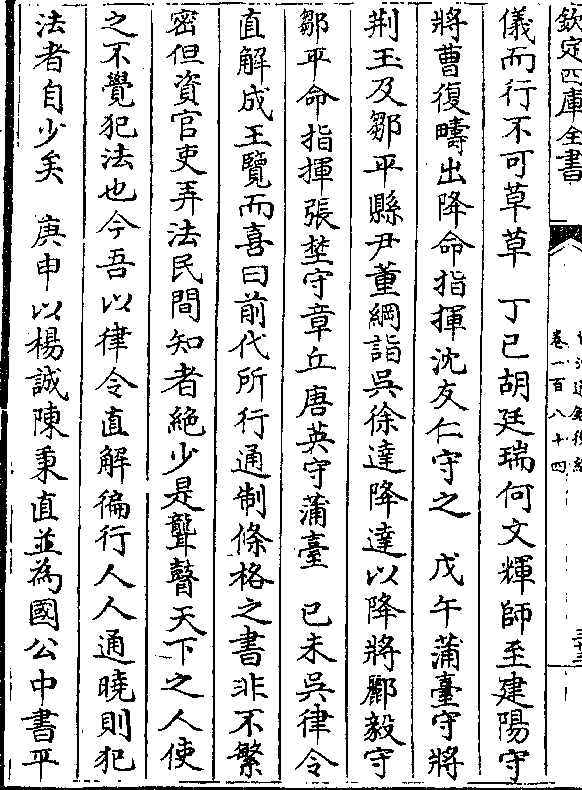 欽定四庫全書
卷一百八十四
儀而行不可草草　丁巳胡廷瑞何文輝師至建陽守
將曹復疇出降命指揮沈友仁守之　戊午蒲臺守將
荆玉及鄒平縣尹董綱詣吳徐達降達以降將酈毅守
鄒平命指揮張埜守章丘唐英守蒲臺　已未吳律令
直解成王覽而喜曰前代所行通制條格之書非不繁
密但資官吏弄法民間知者絶少是聾瞽天下之人使
之不覺犯法也今吾以律令直解徧行人人通曉則犯
法者自少矣　庚申以楊誠陳秉直並為國公中書平